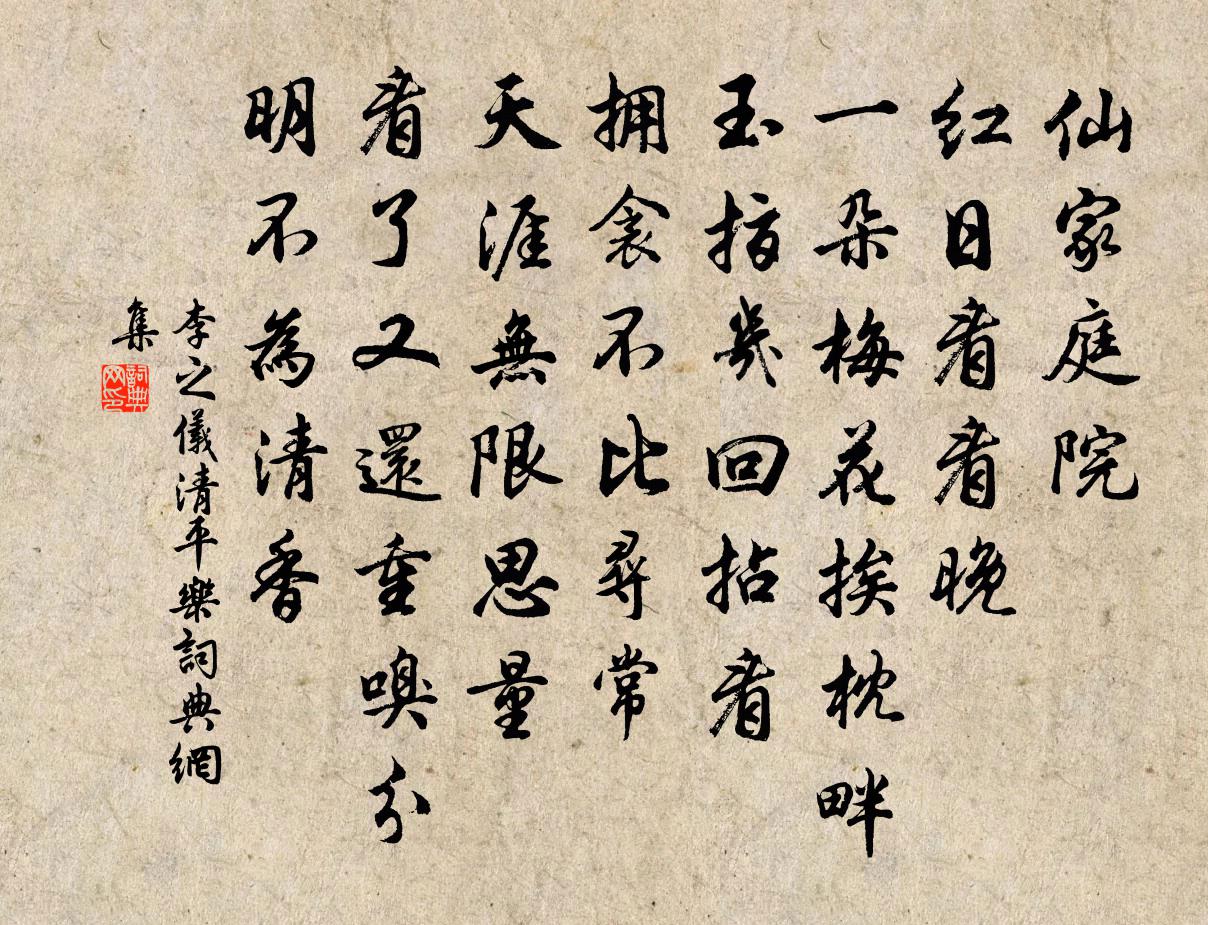 仙家庭院
红日看看晚
一朵梅花挨枕畔
玉指幾回拈看
拥衾不比尋常
天涯無限思量
看了又還重嗅分
明不為清香
李之儀清平樂詞典網
集
詞典
网印